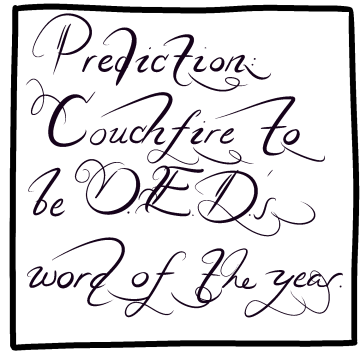 Prediction:
Couchfire to
be O.E.D.'s
word of the year.